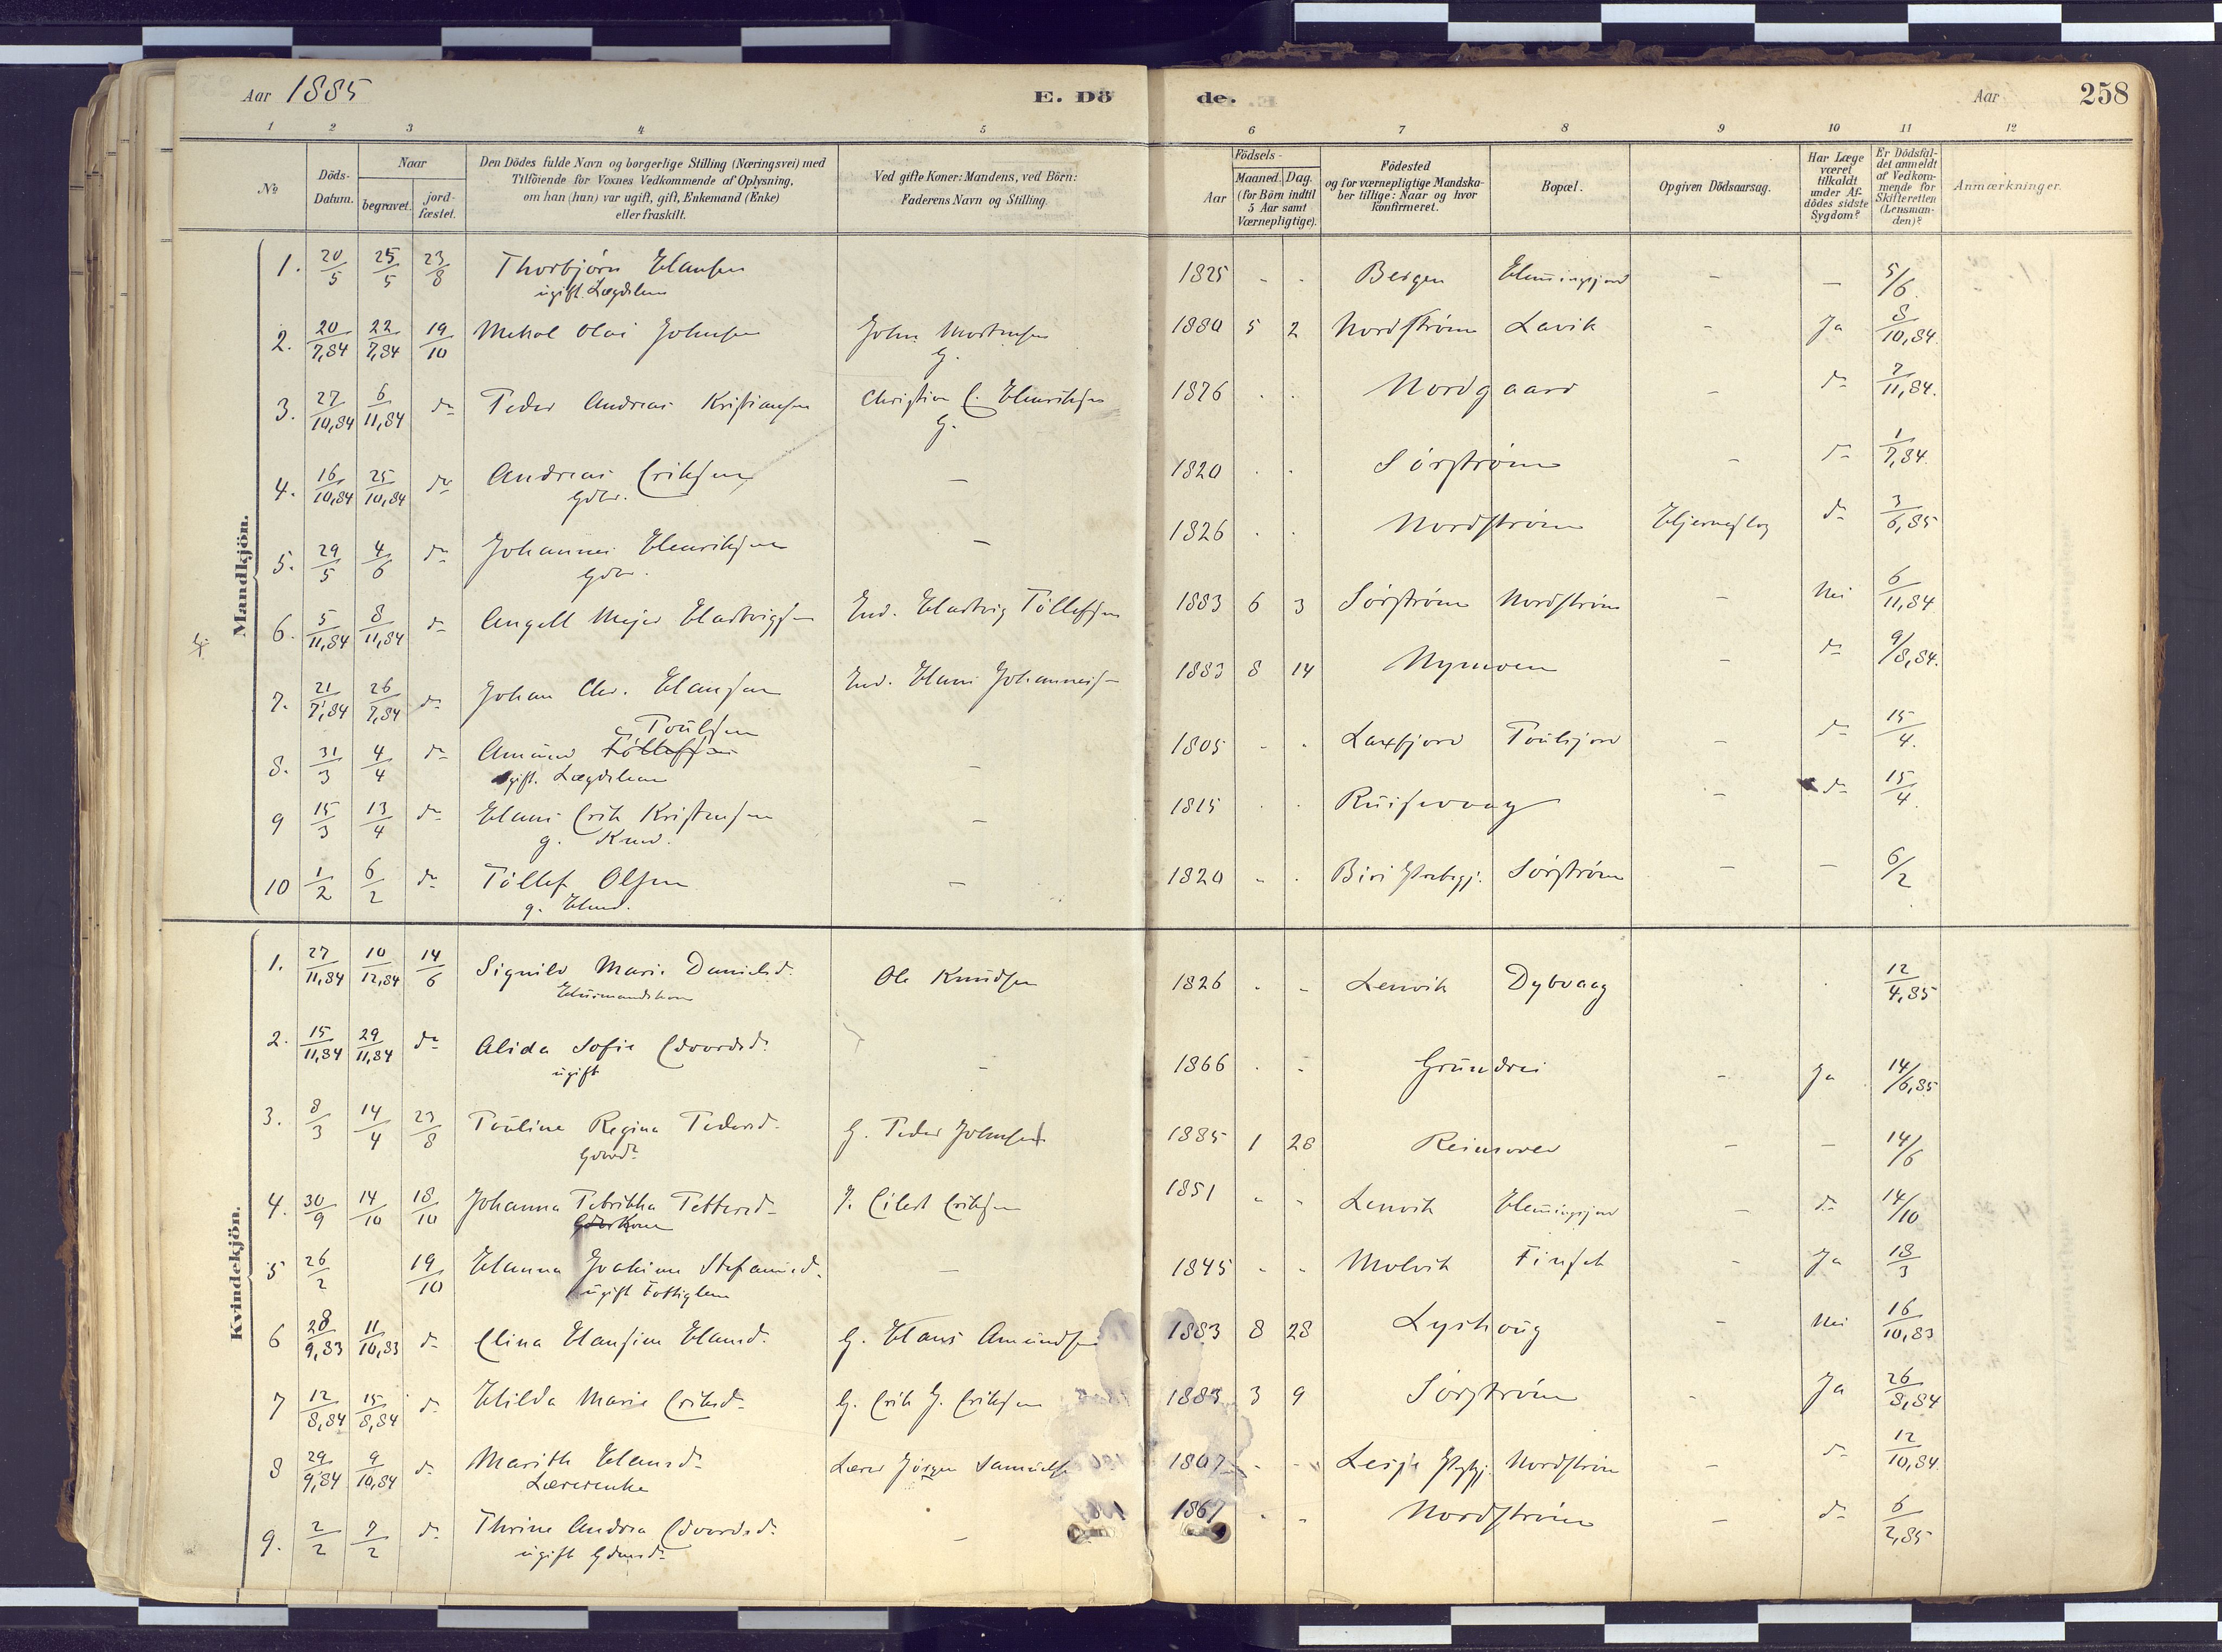 Aar 1885
E. Dö
de.
Aar
258
1 2 3 4 5 6 7 8 9 10 11 12
№
Döds-
Datum.
Naar
begravet.
jord-
fæstet.
Den Dödes fulde Navn og borgerlige Stilling (Næringsvei) med
Tilföiende for Voxnes Vedkommende af Oplysning,
om han (hun) var ugift, gift, Enkemand (Enke)
eller fraskilt.
Ved gifte Koner: Mandens, ved Börn:
Faderens Navn og Stilling.
Födsels-
Aar
Maaned. Dag.
(for Börn indtil
5 Aar samt
Værnepligtige).
Födested
og for værnepligtige Mandska-
ber tillige: Naar og hvor
konfirmeret.
Bopæl.
Opgiven Dödsaarsag.
Har Læge
været
tilkaldt
under Af-
dödes sidste
Sygdom?
Er Dödsfal-
det anmeldt
af Vedkom-
mende for
Skifteretten
(Lensman-
den)?
Anmærkninger.
Mandkjön.
1. 20/5 25/5 23/8 Thorbjörn Hansen 1825 - - Bergen Hemingsjord - - 5/6
ugift. Lægdslem
2. 20/7,84 22/7,84 19/10 Mekal Olai Johnsen John Mortensen 1880 5 2 Nordstrøm Lavik - Ja 8/10,84.
G.
3. 27/10,84 6/11,84 do Peder Andreas Kristiansen Christian C. Henriksen 1876 . . Nordgaard - do 7/11,84.
G.
4. 16/10,84 25/10,84 do Andreas Eriksen - 1820 . . Sørstrøm - do 1/7,84.
Gdbr.
5. 29/5 4/6 do Johannes Henriksen - 1826 . . Nordstrøm Hjerneslag do 3/6,85
Gdbr.
6. 5/11,84 8/11,84 do Angell Mejer Hartvigsen Ind. Hartvig Tollefsen 1883 6 3 Sørstrøm Nordstrøm - Nei 6/11,84
7. 21/7,84 26/7,84 do Johan Chr. Hansen Ind. Hans Johannes- 1883 8 14 Nymoen - do 9/8,84.
Poulsen
8. 31/3 4/4 do Amund Tollefsen 1805 - - Laxfjord Poulsjord - do 15/4.
ugift. Lægdslem -
9 15/3 13/4 do Hans Erik Kristensen - 1815 . . Ruisevaag - do 15/4
g. Kmd.
10 1/2 6/2 do Tollef Olsen - 1820 - . Biri Sørstrøm - - 6/2
g. Hmd.
Kvindekjön.
1. 27/11,84 10/12,84 14/6 Signild Marie Danielsd. Ole Knudsen 1826 . - Lenvik Dybvaag . . 12/4,85
Husmandskone
2. 15/11,84 29/11,84 do Alida Sofie Edvardsd. - 1866 . - Grundrei - Ja 14/6,85
ugift
3. 8/3 14/4 23/8 Pouline Regina Pedersd. G. Peder Johnsen 1885 1 28 Reinsvold - - 14/6
4. 30/9 14/10 18/10 Johanna Pettersd. Eilert Eriksen 1851 - - Lenvik Hemingsjord - do 14/10
GdbrKone
5 26/2 19/10 Hanna Joakime Stefansd. - 1845 - - Molvik Finset - Ja 18/3
ugift Fattiglem
6 28/9,83 11/10,83 do Elina Hansine Hansd. G. Hans Amundsen 1883 8 28 Lyshoug - Nei 16/10,83
7 12/8,84 15/8,84 do Hilda Marie Eriksd. G. Erik J. Eriksen 1883 3 9 Sørstrøm - Ja 26/8,84
8 29/9,84 9/10,84 do Marith Hansd. Lærer Jörgen Samuels 1807 - - Lesje Nordstrøm - do 12/10,84.
Lærerenke
9. 2/2 7/2 do Thrine Andrea Edvardsd. - 1867 - - Nordstrøm - do 6/2,85
ugift